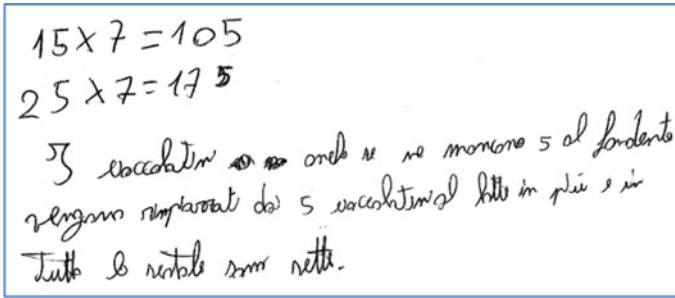 15×7=105
25×7=175
I coccolatin anche se ne mancano 5 al fondente
vengon rimpiazzat da 5 coccolatin al latte in più e in
tutto le scatole son sette.